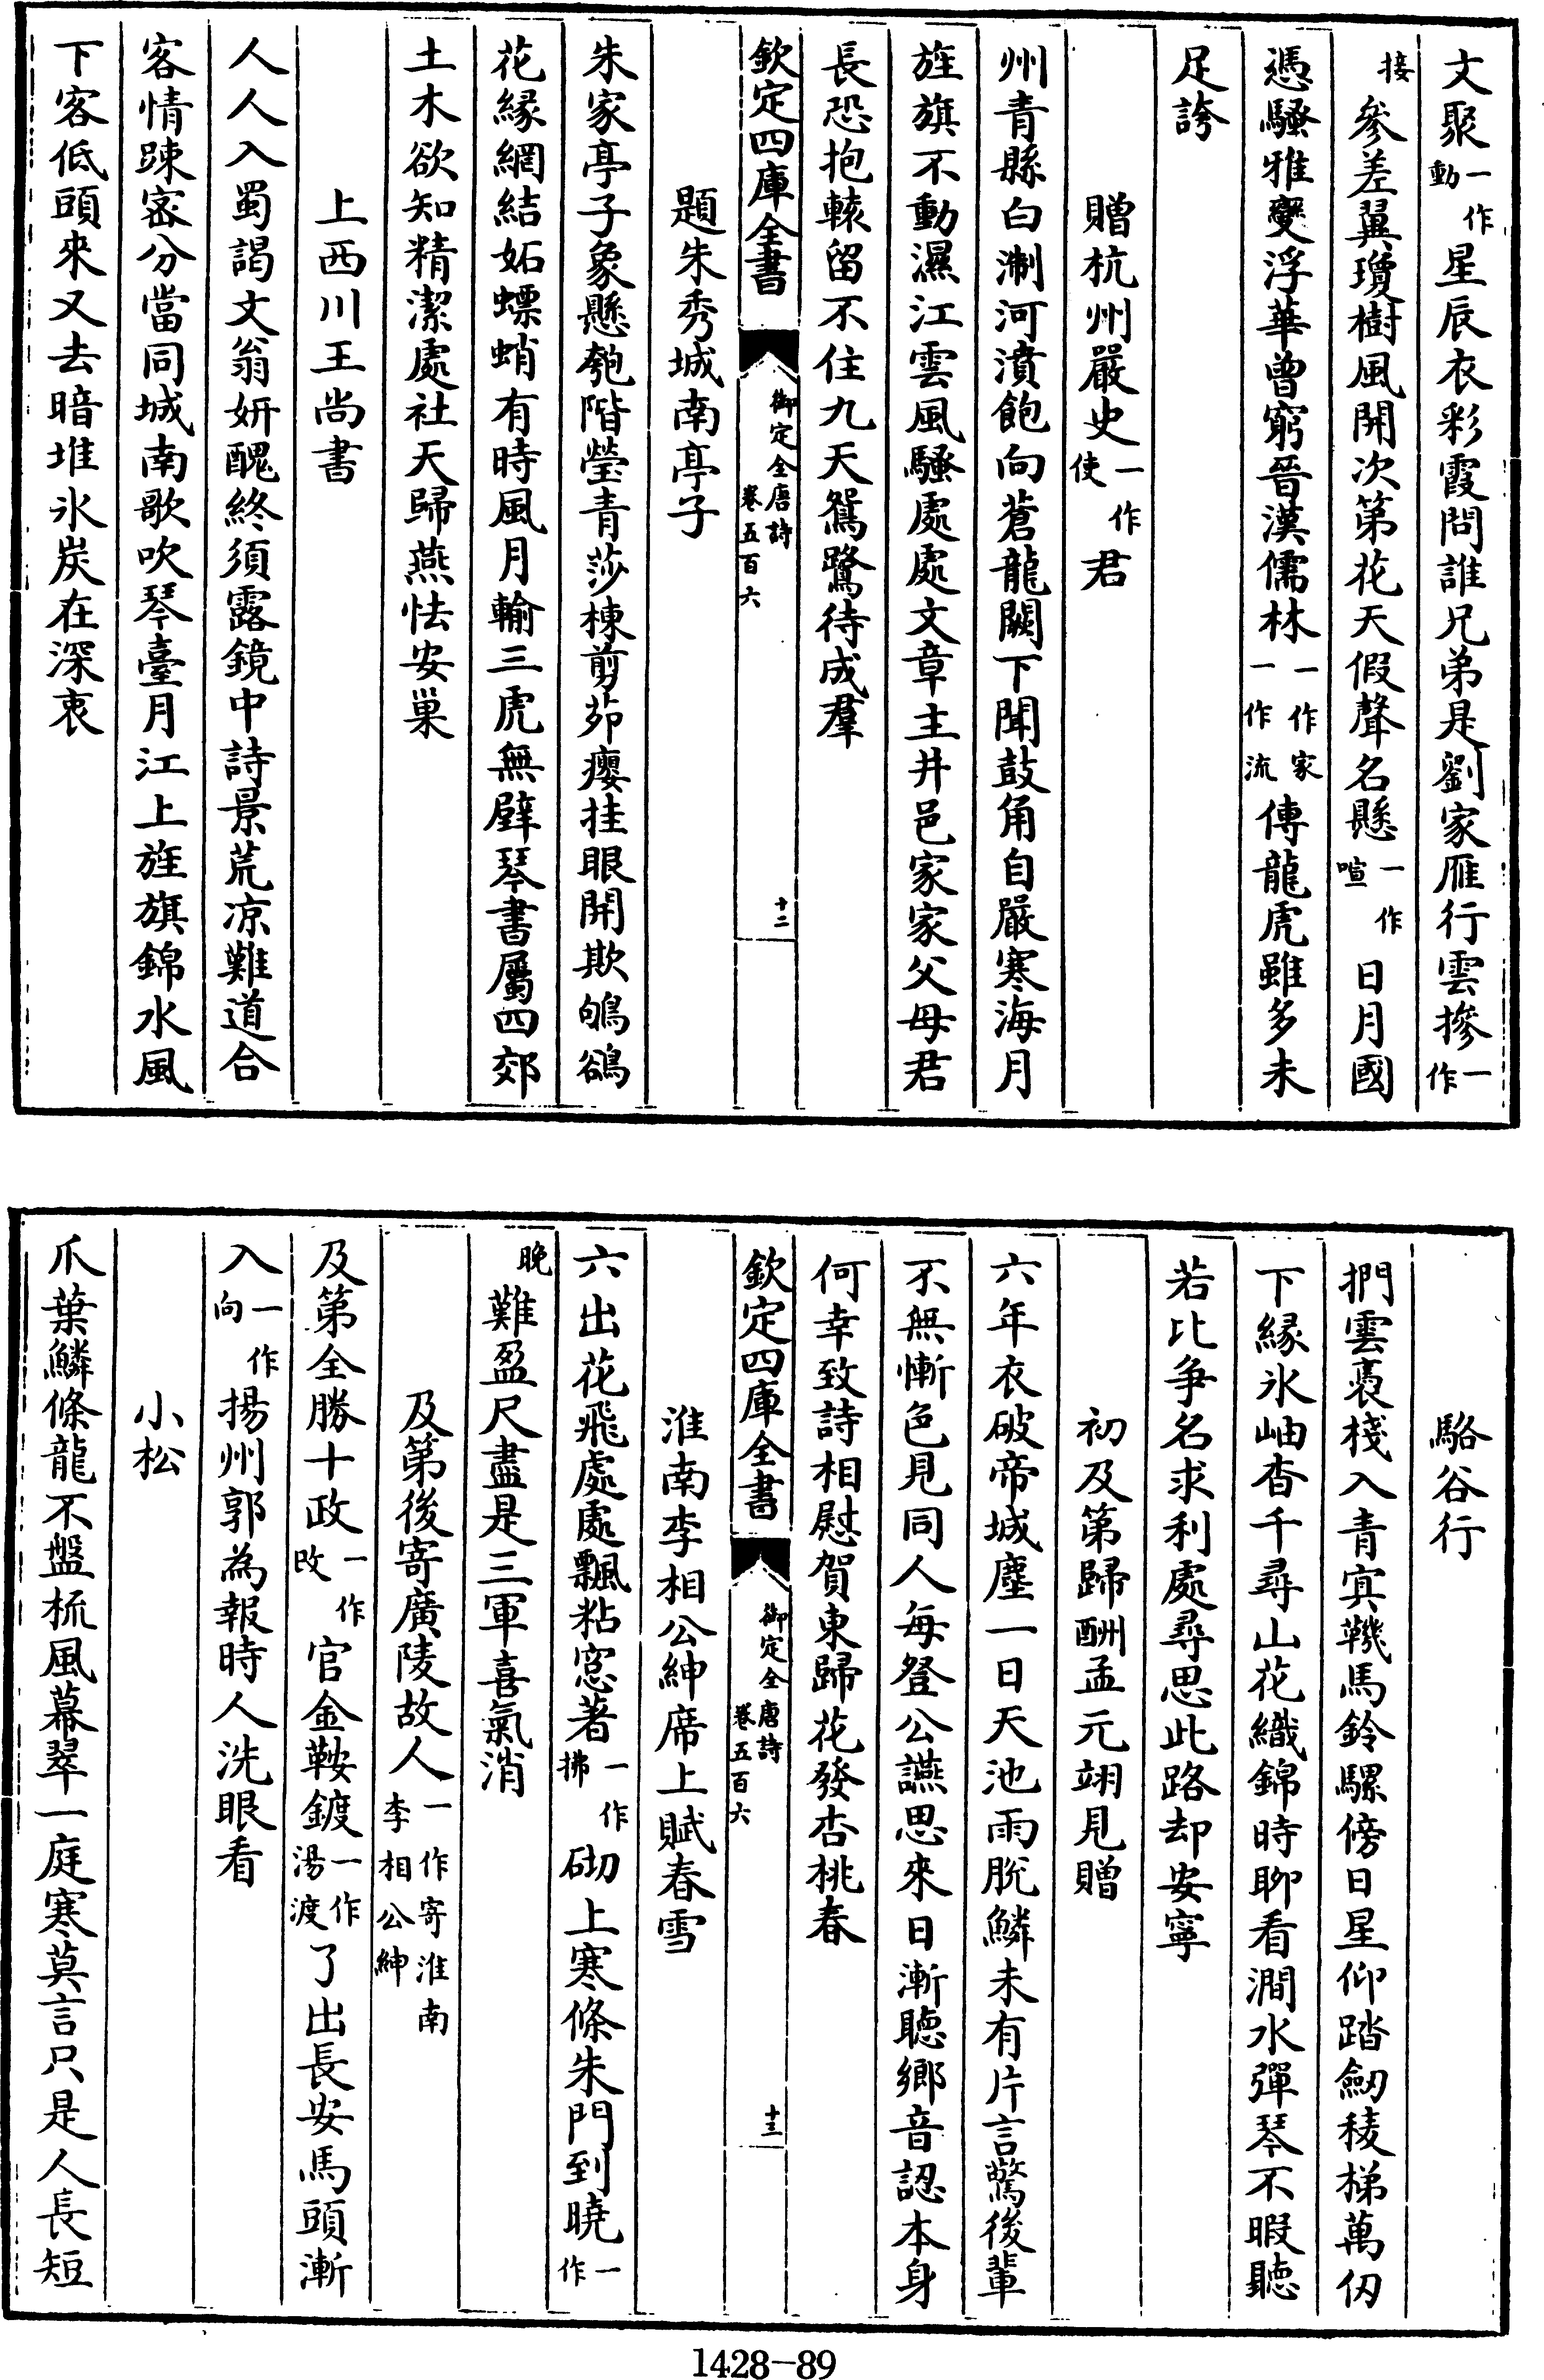 文聚一作動星辰衣彩霞問誰兄弟是劉家雁行雲摻一作
接參差翼瓊樹風開次第花天假聲名懸一作喧日月國
憑騷雅變浮華曾窮晉漢儒林一作家一作流傳龍虎雖多未
足誇
贈杭州嚴史一作使君
州青縣白淛河濆飽向蒼龍闕下聞鼓角自嚴寒海月
旌旗不動濕江雲風騷處處文章主井邑家家父母君
長恐抱轅留不住九天鴛鷺待成羣
欽定四庫全書 御定全唐詩卷五百六 十二
題朱秀城南亭子
朱家亭子象懸匏階瑩青莎棟剪茆癭挂眼開欺鴝鵒
花緣網結妬螵蛸有時風月輸三虎無壁琴書屬四郊
土木欲知精潔處社天歸燕怯安巢
上西川王尚書
人人入蜀謁文翁妍醜終須露鏡中詩景荒凉難道合
客情踈密分當同城南歌吹琴臺月江上旌旗錦水風
下客低頭來又去暗堆氷炭在深衷
駱谷行
捫雲裊棧入青㝠鞿馬鈴騾傍日星仰踏劒稜梯萬仞
下緣氷岫杳千尋山花織錦時聊看澗水彈琴不暇聽
若比争名求利處尋思此路却安寧
初及第歸酬孟元翊見贈
六年衣破帝城塵一日天池雨脫鱗未有片言驚後輩
不無慚色見同人每登公讌思來日漸聽鄉音認本身
何幸致詩相慰賀東歸花發杏桃春
欽定四庫全書 御定全唐詩卷五百六 十三
淮南李相公紳席上賦春雪
六出花飛處處飄粘窓著一作拂砌上寒條朱門到曉一作
晚難盈尺盡是三軍喜氣消
及第後寄廣陵故人一作寄淮南李相公紳
及第全勝十政一作改官金鞍鍍一作湯渡了出長安馬頭漸
入一作向揚州郭為報時人洗眼看
小松
爪葉鱗條龍不盤梳風幕翠一庭寒莫言只是人長短
1428-89